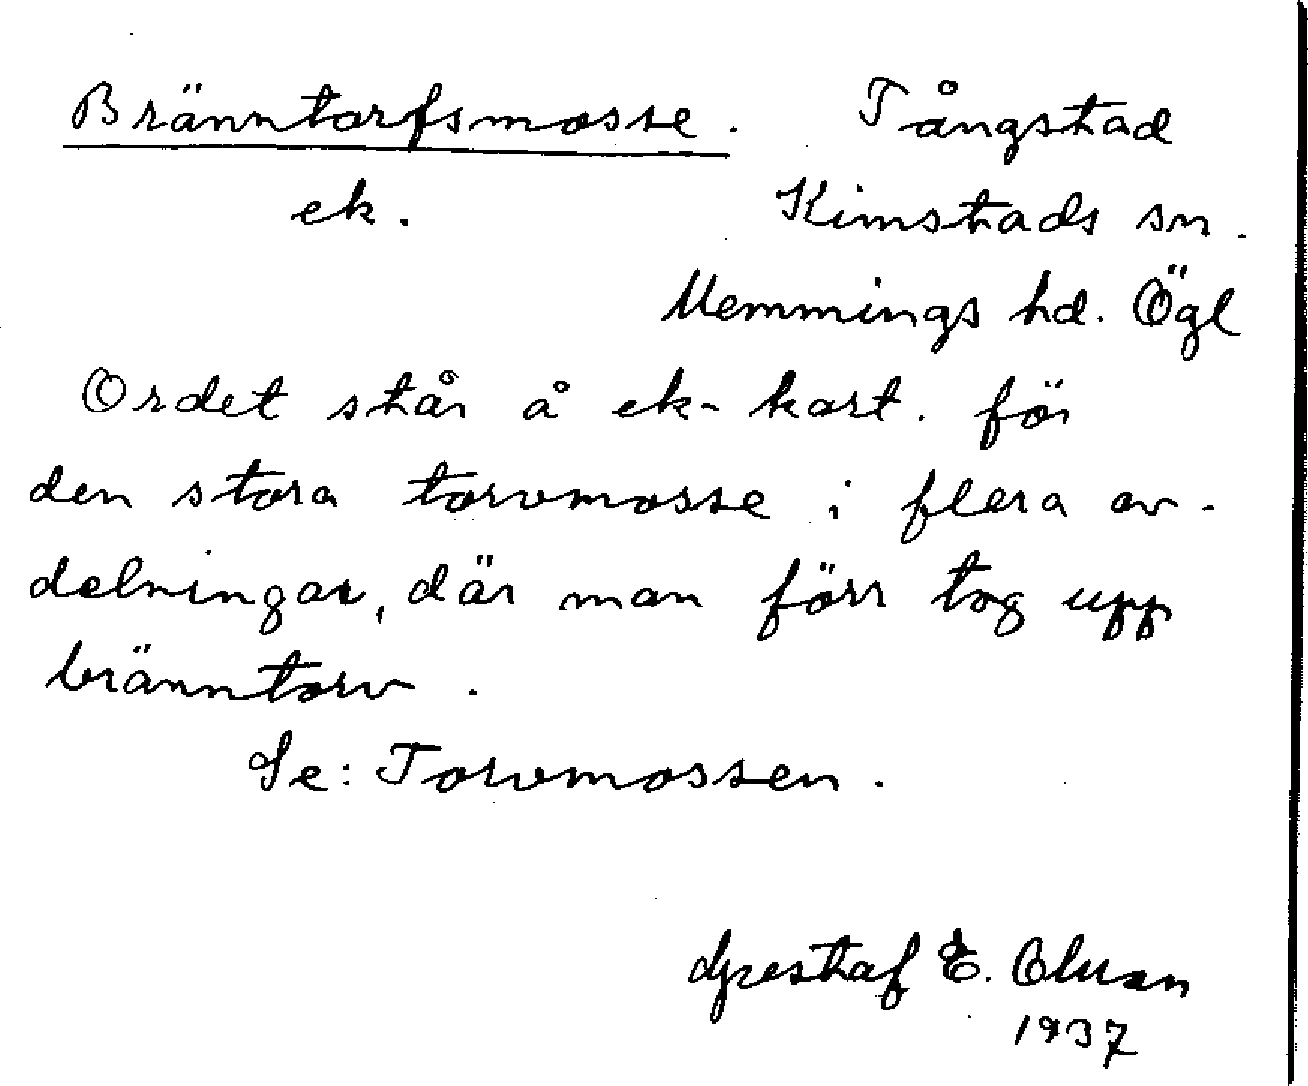 Bränntorfsmosse. Tångstad
ek. Kimstads sn.
Memmings hd. Ögl
Ordet står å ek-kart. för
den stora torvmosse i flera av-
delningar, där man förr tog upp
bränntorv.
Se: Torvmossen.
Gustaf E. Olsson
1937